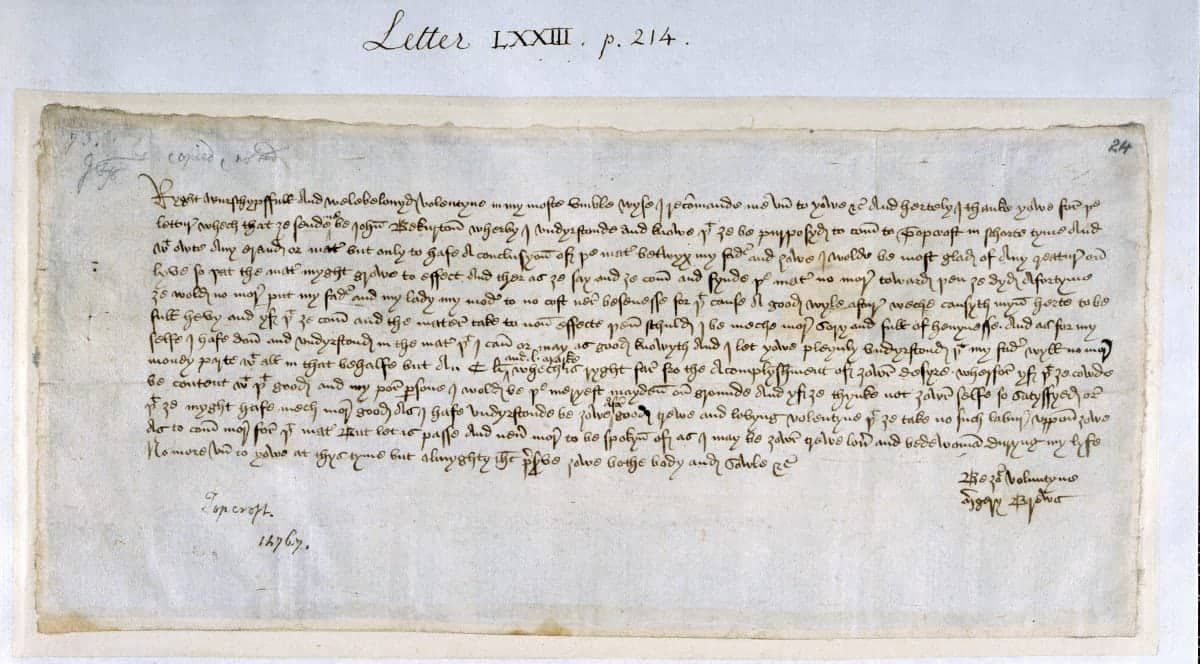 Letter LXXIII. p. 214.
73.
copied
24
Ryght wurschypffull And welebelouyd Volentyne in my moste vmble wyse J recõmande me vn to yowe &c And hertely J thanke yowe for þe
lettur whech that ȝe sende me be John Bekurton wherby J vndyrstonde and knowe þt ȝe be purposyd to com to Topcroft in schorte tyme And
wt owte Any erand or mater but only to hafe A conclusyon of þe mater betwyx my fader and ȝowe J wolde be most glad of Any creatur on
lyve so þat the mater myght growe to effect And ther as ȝe say and ȝe com and fynde þe mater no more toward þen ȝe dyd Afortyme
ȝe wold no more put my fader and my lady my moder to no cost ner besenesse for þt cause A good wyle aftyr weche causyth myn herte to be
full hevy and yf þt ȝe com and the mater take to non effecte þen schuld J be meche more sory and full of heuynesse And as for my
selfe J hafe don and vndyrstond in the mater þt J can or may as good knowyth And J let yowe pleynly vndyrstond þt my fader wyll no more
money parte wt all in that behalfe but An C li and l marke whech is ryght far fro the Acomplyshment of ȝowr desyre wherfor yf þt ȝe cowde
be content wt þt good and my por persone J wold be þe meryest mayden on grounde And yf ȝe thynke not ȝowr selfe so satysfyed or
þt ȝe myght hafe mech more good As J hafe vndyrstonde be ȝowe afor good trewe and lovyng volentyne þt ȝe take no such labur vppon ȝowe
As to com more for þt mater But let is passe And neuer more to be spokyn of as J may be ȝowr trewe louer and bedewoman duryng my lyfe
No more vn to yowe at thys tyme but Almyghty Jhs preserve ȝowe bothe body and sowle &c
Be ȝour Voluntyne
Mergery Brews
Topcroft.
1476/7.